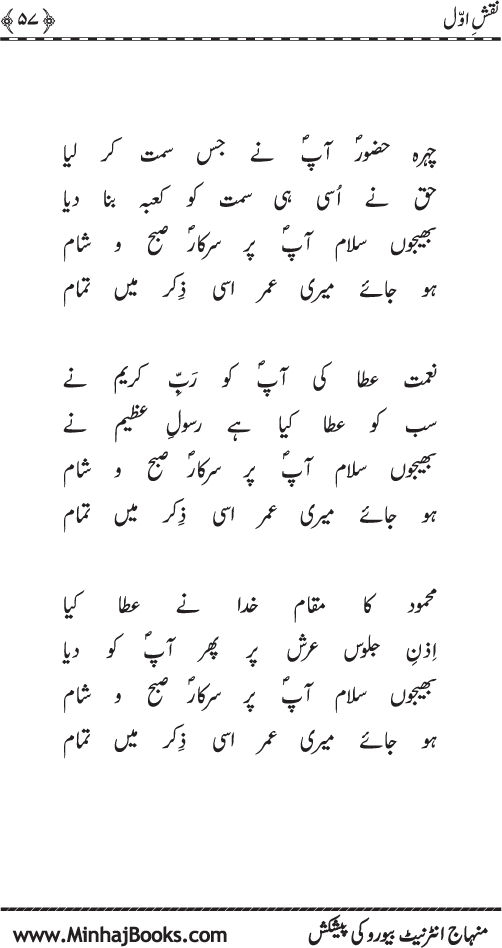 نقشِ اوّل
﴿۵۷﴾
چہرہ حضورؐ آپؐ نے جس سمت کر لیا
حق نے اُسی ہی سمت کو کعبہ بنا دیا
بھیجوں سلام آپؐ پر سرکارؐ صبح و شام
ہو جائے میری عمر اسی ذِکر میں تمام
نعمت عطا کی آپؐ کو رَبِّ کریم نے
سب کو عطا کیا ہے رسولِ عظیم نے
بھیجوں سلام آپؐ پر سرکارؐ صبح و شام
ہو جائے میری عمر اسی ذِکر میں تمام
محمود کا مقام خدا نے عطا کیا
اِذنِ جلوس عرش پر پھر آپؐ کو دیا
بھیجوں سلام آپؐ پر سرکارؐ صبح و شام
ہو جائے میری عمر اسی ذِکر میں تمام
منہاج انٹرنیٹ بیورو کی پیشکش
www.MinhajBooks.com